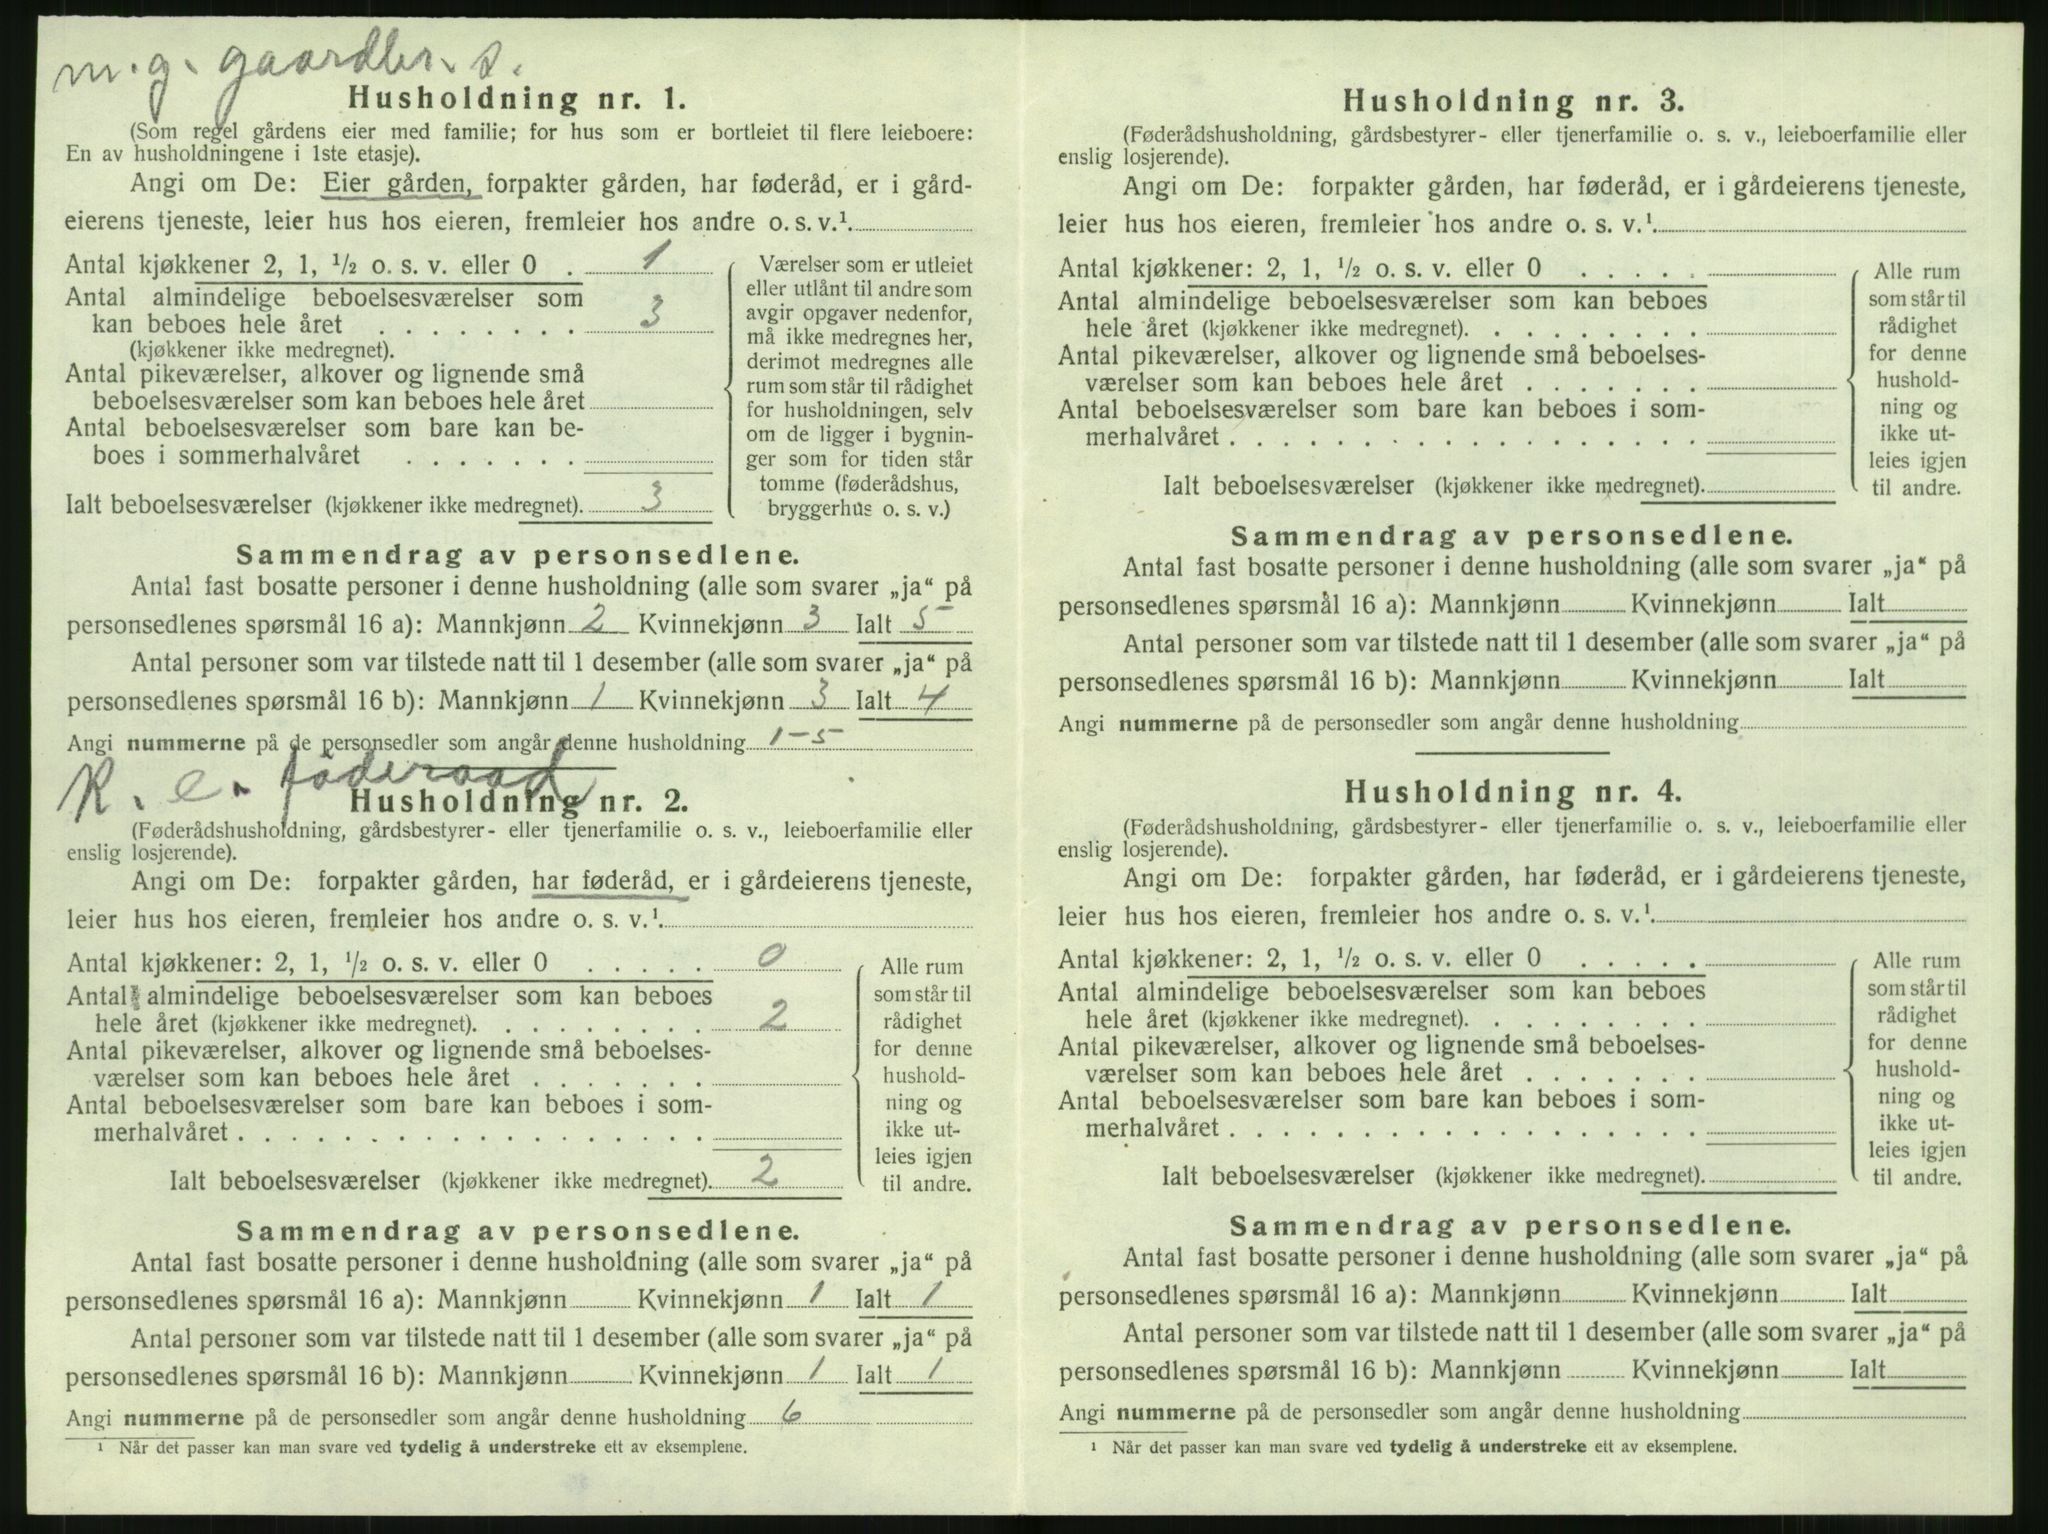 m. g. gaardbr. s.
Husholdning nr. 1.
(Som regel gårdens eier med familie; for hus som er bortleiet til flere leieboere:
En av husholdningene i 1ste etasje).
Angi om De: Eier gården, forpakter gården, har føderåd, er i gård-
eierens tjeneste, leier hus hos eieren, fremleier hos andre o. s. v.¹
Antal kjøkkener 2, 1, ½ o. s. v. eller 0 . 1
Antal almindelige beboelsesværelser som
kan beboes hele året . . . . . . . . 3
(kjøkkener ikke medregnet).
Antal pikeværelser, alkover og lignende små
beboelsesværelser som kan beboes hele året
Antal beboelsesværelser som bare kan be-
boes i sommerhalvåret . . . . . . .
Ialt beboelsesværelser (kjøkkener ikke medregnet). 3
Værelser som er utleiet
eller utlånt til andre som
avgir opgaver nedenfor,
må ikke medregnes her,
derimot medregnes alle
rum som står til rådighet
for husholdningen, selv
om de ligger i bygnin-
ger som for tiden står
tomme (føderådshus,
bryggerhus o. s. v.)
Sammendrag av personsedlene.
Antal fast bosatte personer i denne husholdning (alle som svarer „ja“ på
personsedlenes spørsmål 16 a): Mannkjønn 2 Kvinnekjønn 3 Ialt 5
Antal personer som var tilstede natt til 1 desember (alle som svarer „ja“ på
personsedlenes spørsmål 16 b): Mannkjønn 1 Kvinnekjønn 3 Ialt 4
Angi nummerne på de personsedler som angår denne husholdning 1-5
K. e. föderaad
Husholdning nr. 2.
(Føderådshusholdning, gårdsbestyrer- eller tjenerfamilie o. s. v., leieboerfamilie eller
enslig losjerende).
Angi om De: forpakter gården, har føderåd, er i gårdeierens tjeneste,
leier hus hos eieren, fremleier hos andre o. s. v.¹
Antal kjøkkener: 2, 1, ½ o. s. v. eller 0 . . . . . 0
Antal almindelige beboelsesværelser som kan beboes
hele året (kjøkkener ikke medregnet). . . . . . . . . 2
Antal pikeværelser, alkover og lignende små beboelses-
værelser som kan beboes hele året . . . . . . .
Antal beboelsesværelser som bare kan beboes i som-
merhalvåret . . . . . . . . . . . . . . . . . .
Ialt beboelsesværelser (kjøkkener ikke medregnet). 2
Alle rum
som står til
rådighet
for denne
hushold-
ning og
ikke ut-
leies igjen
til andre.
Sammendrag av personsedlene.
Antal fast bosatte personer i denne husholdning (alle som svarer „ja“ på
personsedlenes spørsmål 16 a): Mannkjønn Kvinnekjønn 1 Ialt 1
Antal personer som var tilstede natt til 1 desember (alle som svarer „ja“ på
personsedlenes spørsmål 16 b): Mannkjønn Kvinnekjønn 1 Ialt 1
Angi nummerne på de personsedler som angår denne husholdning 6
¹ Når det passer kan man svare ved tydelig å understreke ett av eksemplene.
Husholdning nr. 3.
(Føderådshusholdning, gårdsbestyrer- eller tjenerfamilie o. s. v., leieboerfamilie eller
enslig losjerende).
Angi om De: forpakter gården, har føderåd, er i gårdeierens tjeneste,
leier hus hos eieren, fremleier hos andre o. s. v.¹
Antal kjøkkener: 2, 1, ½ o. s. v. eller 0 . . . . .
Antal almindelige beboelsesværelser som kan beboes
hele året (kjøkkener ikke medregnet). . . . . . . . .
Antal pikeværelser, alkover og lignende små beboelses-
værelser som kan beboes hele året . . . . . . .
Antal beboelsesværelser som bare kan beboes i som-
merhalvåret . . . . . . . . . . . . . . . . . .
Ialt beboelsesværelser (kjøkkener ikke medregnet).
Alle rum
som står til
rådighet
for denne
hushold-
ning og
ikke ut-
leies igjen
til andre.
Sammendrag av personsedlene.
Antal fast bosatte personer i denne husholdning (alle som svarer „ja“ på
personsedlenes spørsmål 16 a): Mannkjønn Kvinnekjønn Ialt
Antal personer som var tilstede natt til 1 desember (alle som svarer „ja“ på
personsedlenes spørsmål 16 b): Mannkjønn Kvinnekjønn Ialt
Angi nummerne på de personsedler som angår denne husholdning
Husholdning nr. 4.
(Føderådshusholdning, gårdsbestyrer- eller tjenerfamilie o. s. v., leieboerfamilie eller
enslig losjerende).
Angi om De: forpakter gården, har føderåd, er i gårdeierens tjeneste,
leier hus hos eieren, fremleier hos andre o. s. v.¹
Antal kjøkkener: 2, 1, ½ o. s. v. eller 0 . . . . .
Antal almindelige beboelsesværelser som kan beboes
hele året (kjøkkener ikke medregnet). . . . . . . . .
Antal pikeværelser, alkover og lignende små beboelses-
værelser som kan beboes hele året . . . . . . .
Antal beboelsesværelser som bare kan beboes i som-
merhalvåret . . . . . . . . . . . . . . . . . .
Ialt beboelsesværelser (kjøkkener ikke medregnet).
Alle rum
som står til
rådighet
for denne
hushold-
ning og
ikke ut-
leies igjen
til andre.
Sammendrag av personsedlene.
Antal fast bosatte personer i denne husholdning (alle som svarer „ja“ på
personsedlenes spørsmål 16 a): Mannkjønn Kvinnekjønn Ialt
Antal personer som var tilstede natt til 1 desember (alle som svarer „ja“ på
personsedlenes spørsmål 16 b): Mannkjønn Kvinnekjønn Ialt
Angi nummerne på de personsedler som angår denne husholdning
¹ Når det passer kan man svare ved tydelig å understreke ett av eksemplene.